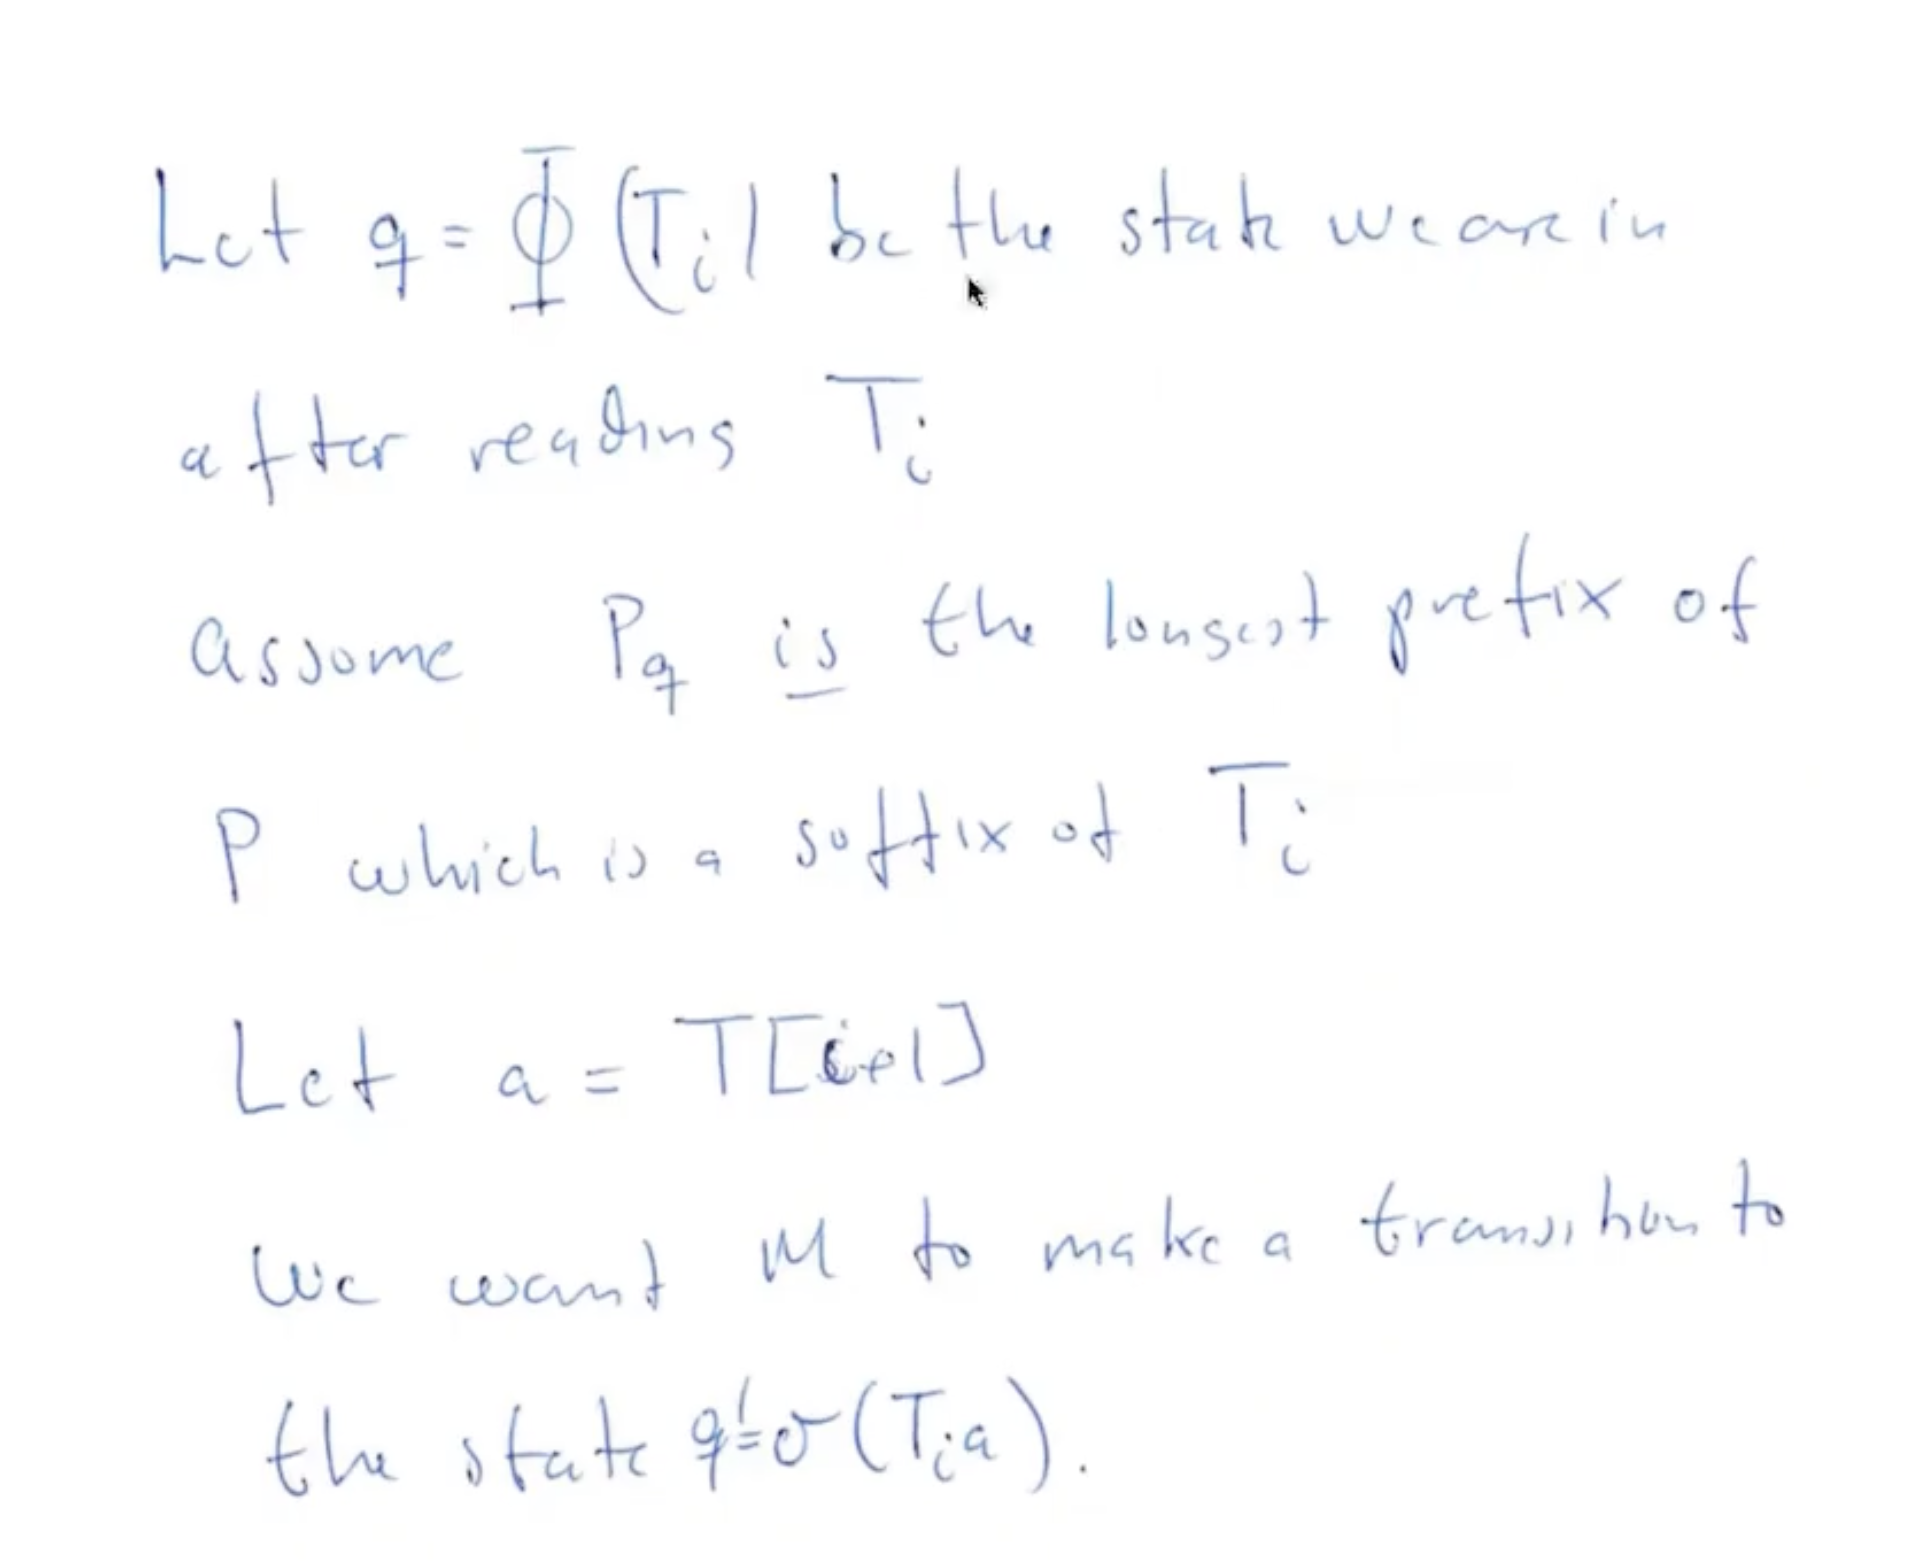 Let q = Φ(Ti) be the state we are in
after reading Ti
assume Pq is the longest prefix of
P which is a suffix of Ti
Let a = T[i+1]
We want M to make a transition to
the state q'=σ(Tia).